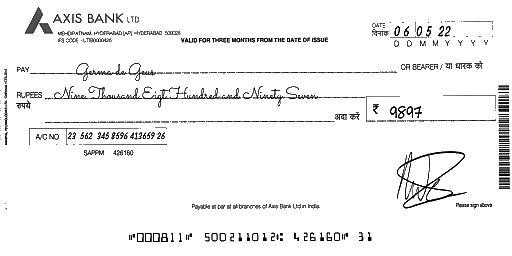 AXIS BANK LTD
MEHDIPATNAM, HYDERABAD [AP] - HYDERABAD 500028
IFS CODE : UTIB0000426
VALID FOR THREE MONTHS FROM THE DATE OF ISSUE
DATE 06 05 22
दिनांक D D M M Y Y Y Y
PAY Germa de Geus OR BEARER / या धारक को
RUPEES Nine Thousand Eigt Hundred and Ninety Seven
रुपये अदा करें ₹ 9897
A/C NO 23 562 345 8596 413659 26
SAPPM 426160
Payable at par at all branches of Axis Bank Ltd in India.
Please sign above
⑈000811⑈ 500211012⑆ 426160⑈ 31